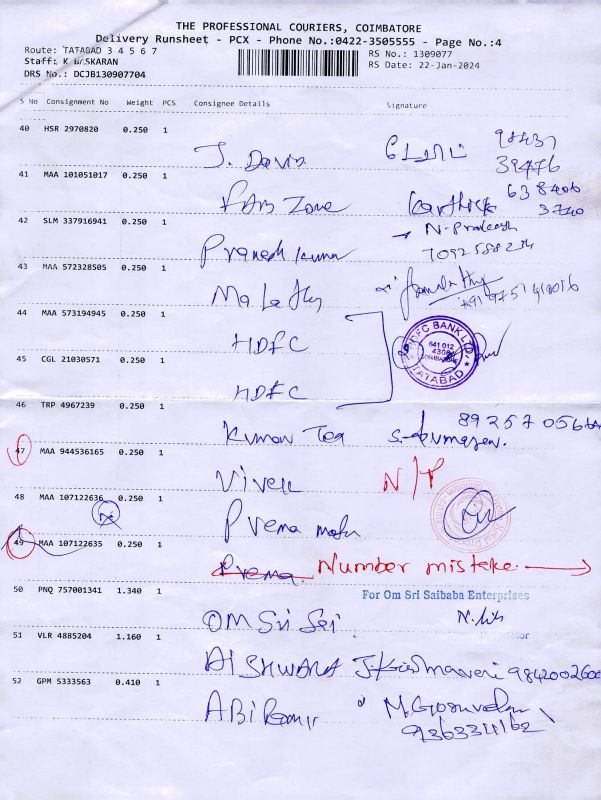 THE PROFESSIONAL COURIERS, COIMBATORE
Delivery Runsheet - PCX - Phone No.:0422-3505555 - Page No.:4
Route: TATABAD 3 4 5 6 7
RS No.: 1309077
Staff: K BASKARAN
RS Date: 22-Jan-2024
DRS No.: DCJB130907704
S No Consignment No Weight PCS Consignee Details Signature
40 HSR 2970820 0.250 1
J. Davis
39476
41 MAA 101051017 0.250 1
Zone Karthick
638406
3740
42 SLM 337916941 0.250 1
N-Pradeesh
Pranesh kumar
43 MAA 572328505 0.250 1
Malathy
44 MAA 573194945 0.250 1
HDFC
HDFC BANK LTD
641 012
COIMBATORE
TATABAD
45 CGL 21030571 0.250 1
HDFC
46 TRP 4967239 0.250 1
Kumar Tea
47 MAA 944536165 0.250 1
Vivek N/P
48 MAA 107122636 0.250 1
Prema
49 MAA 107122635 0.250 1
Prema Number misteke
50 PNQ 757001341 1.340 1
For Om Sri Saibaba Enterprises
OM Sri Sai
51 VLR 4885204 1.160 1
AISHWARYA 9842002600
52 GPM 5333563 0.410 1
ABiRami